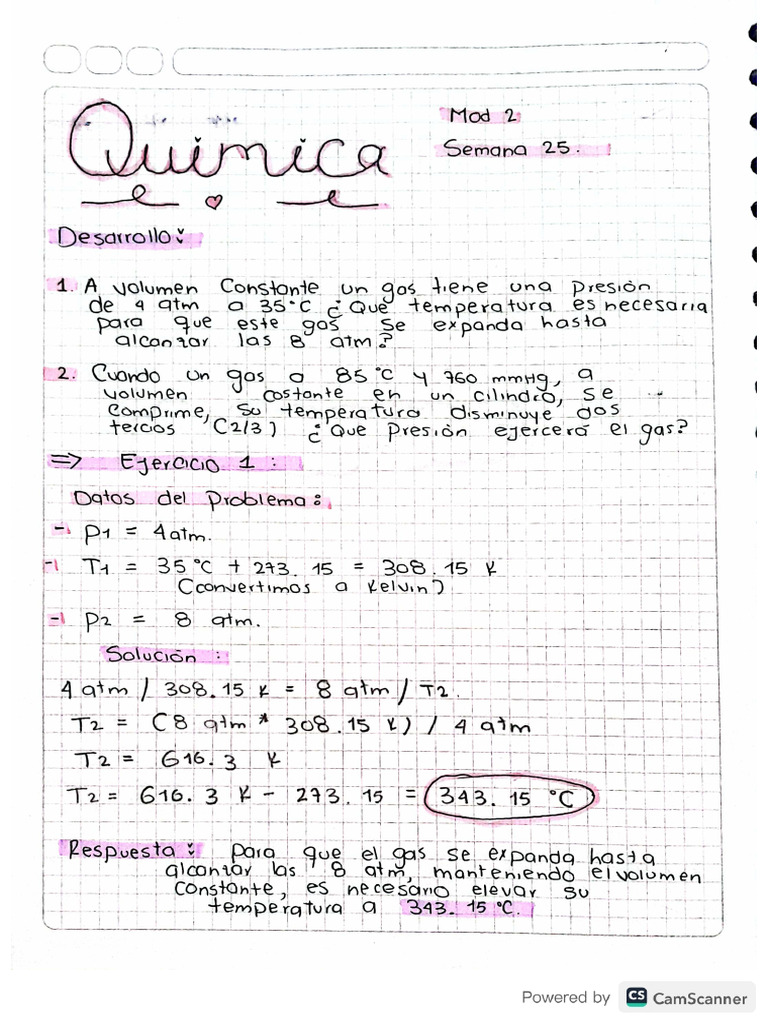 Quimica
Mod 2
Semana 25.
Desarrollo:
1. A volumen Constante un gas tiene una presión
de 4 atm a 35°C ¿Que temperatura es necesaria
para que este gas se expanda hasta
alcanzar las 8 atm?
2. Cuando un gas a 85°C y 760 mmHg, a
volumen costante en un cilindro, se
comprime, su temperatura disminuye dos
tercios (2/3) ¿Que Presión ejercerá el gas?
⇒ Ejercicio 1:
Datos del Problema:
- P1 = 4atm.
- T1 = 35°C + 273.15 = 308.15 K
(convertimos a Kelvin)
- P2 = 8 atm.
Solución:
4 atm / 308.15 K = 8 atm / T2.
T2 = (8 atm * 308.15 K) / 4 atm
T2 = 616.3 K
T2 = 616.3 K - 273.15 = 343.15 °C
Respuesta: Para que el gas se expanda hasta
alcanzar las 8 atm, manteniendo el volumen
constante, es necesario elevar su
temperatura a 343.15 °C.
Powered by CS CamScanner